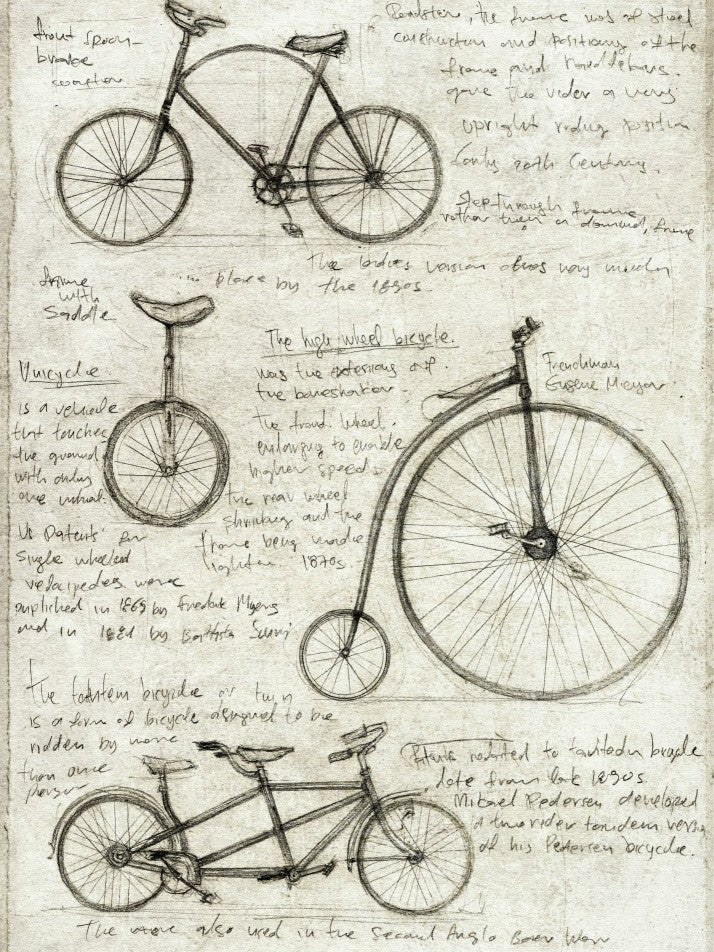 front spoon
brake
Roadster, the frame was of steel
construction and positioning of the
frame and handlebars.
gave the rider a very
upright riding position
early 20th Century.
Step-through frame
rather than a diamond frame
The ladies version was very much
in place by the 1890s.
frame
with
Saddle
Unicycle
is a vehicle
that touches
the ground
with only
one wheel.
US Patents for
single wheeled
velocipedes were
published in 1869 by Fredrik Myers
and in 1881 by Battista Scuri
The high wheel bicycle.
was the extension of
the boneshaker.
the front wheel
enlarging to enable
higher speeds
the rear wheel
shrinking and the
frame being made
lighter. 1870s.
Frenchman
Eugene Meyer
The tandem bicycle or twin
is a form of bicycle designed to be
ridden by more
than one
person
Patents related to tandem bicycle
date from late 1890s.
Mikael Pedersen developed
a two rider tandem version
of his Pedersen bicycle.
The were also used in the Second Anglo Boer War